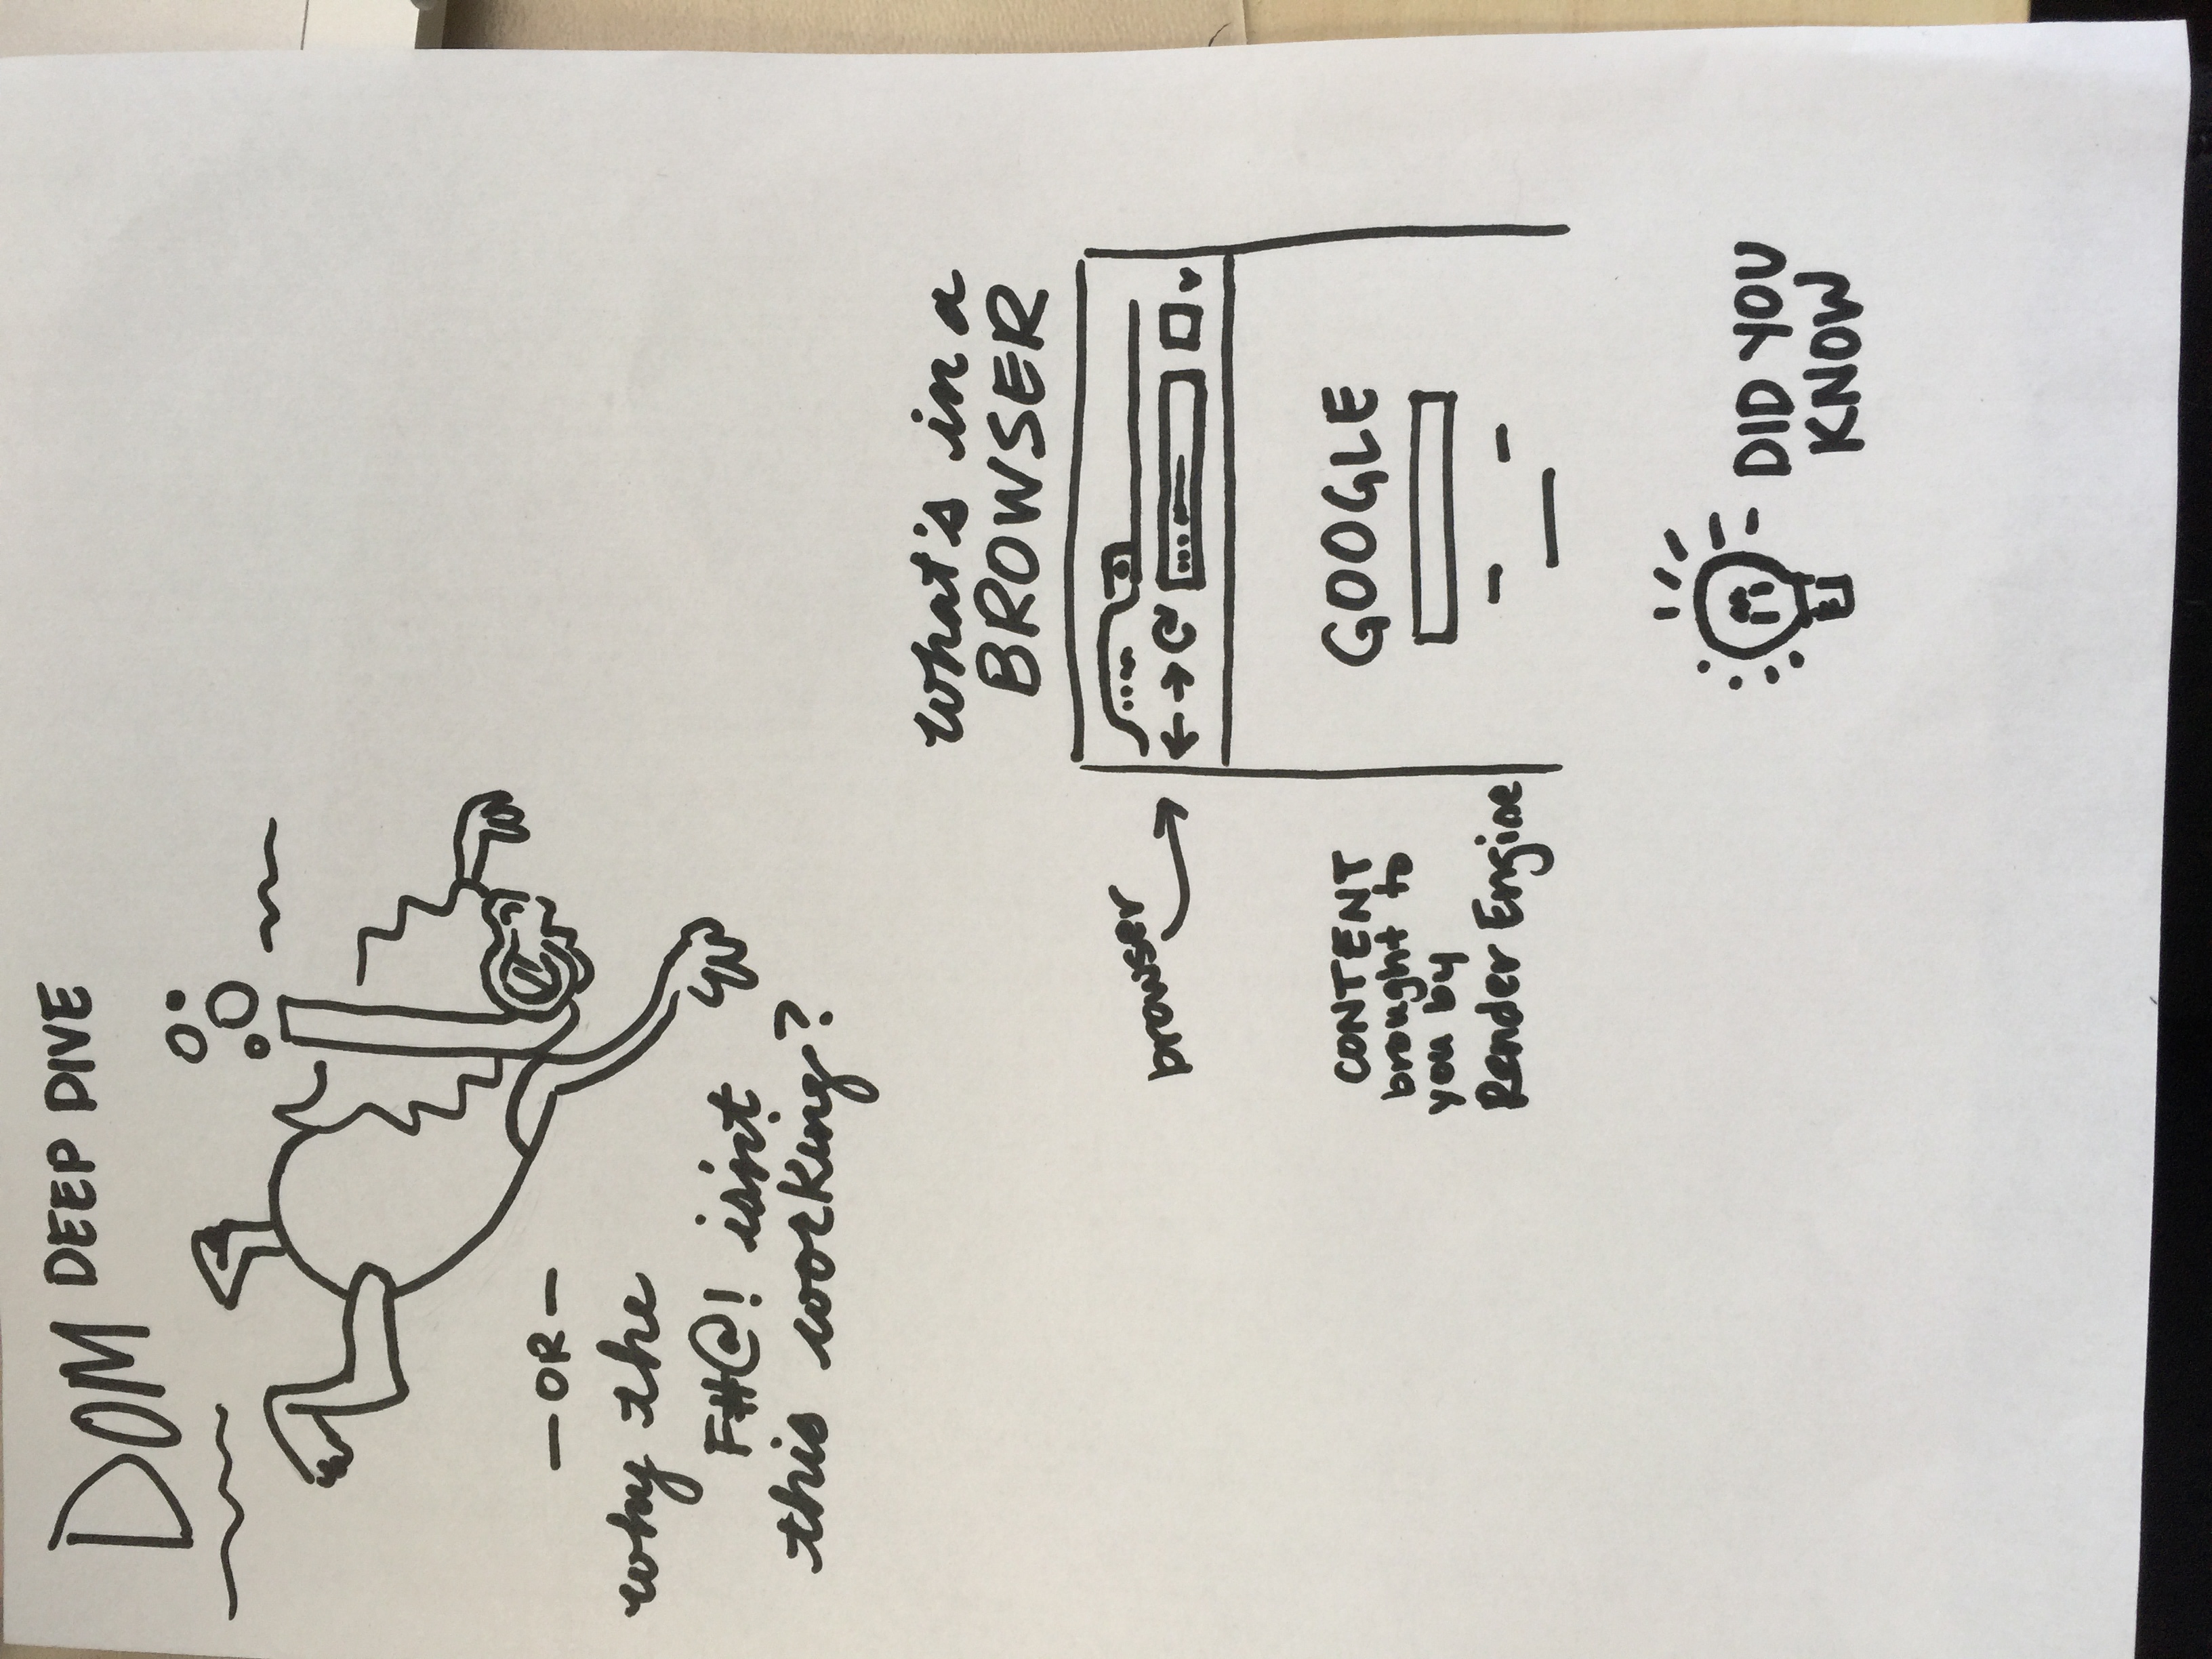 DOM DEEP DIVE
— OR —
why the
F#@! isn't
this working?
what's in a
BROWSER
browser
GOOGLE
CONTENT
brought to
you by
Render Engine
DID YOU
KNOW